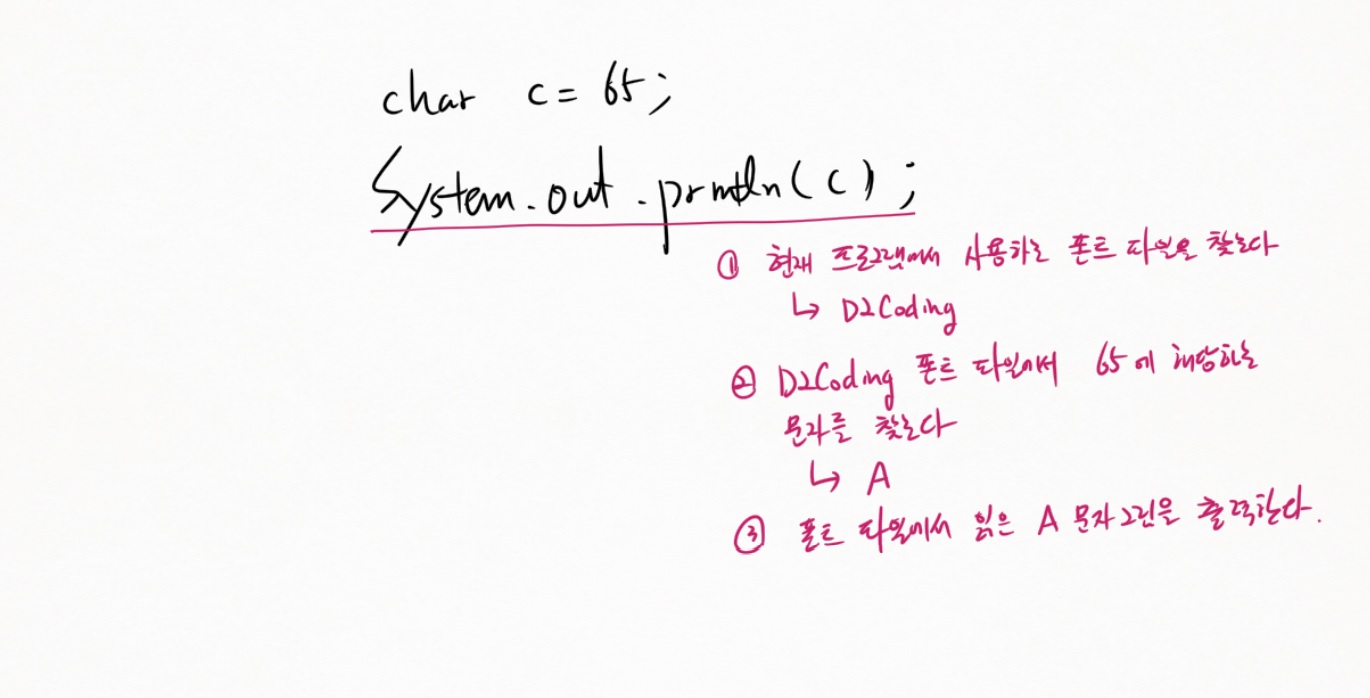 char c = 65;
System.out.println(c);
① 현재 프로그램에서 사용하는 폰트 파일을 찾는다
↳ D2Coding
② D2Coding 폰트 파일에서 65에 해당하는
문자를 찾는다
↳ A
③ 폰트 파일에서 읽은 A 문자그림을 출력한다.